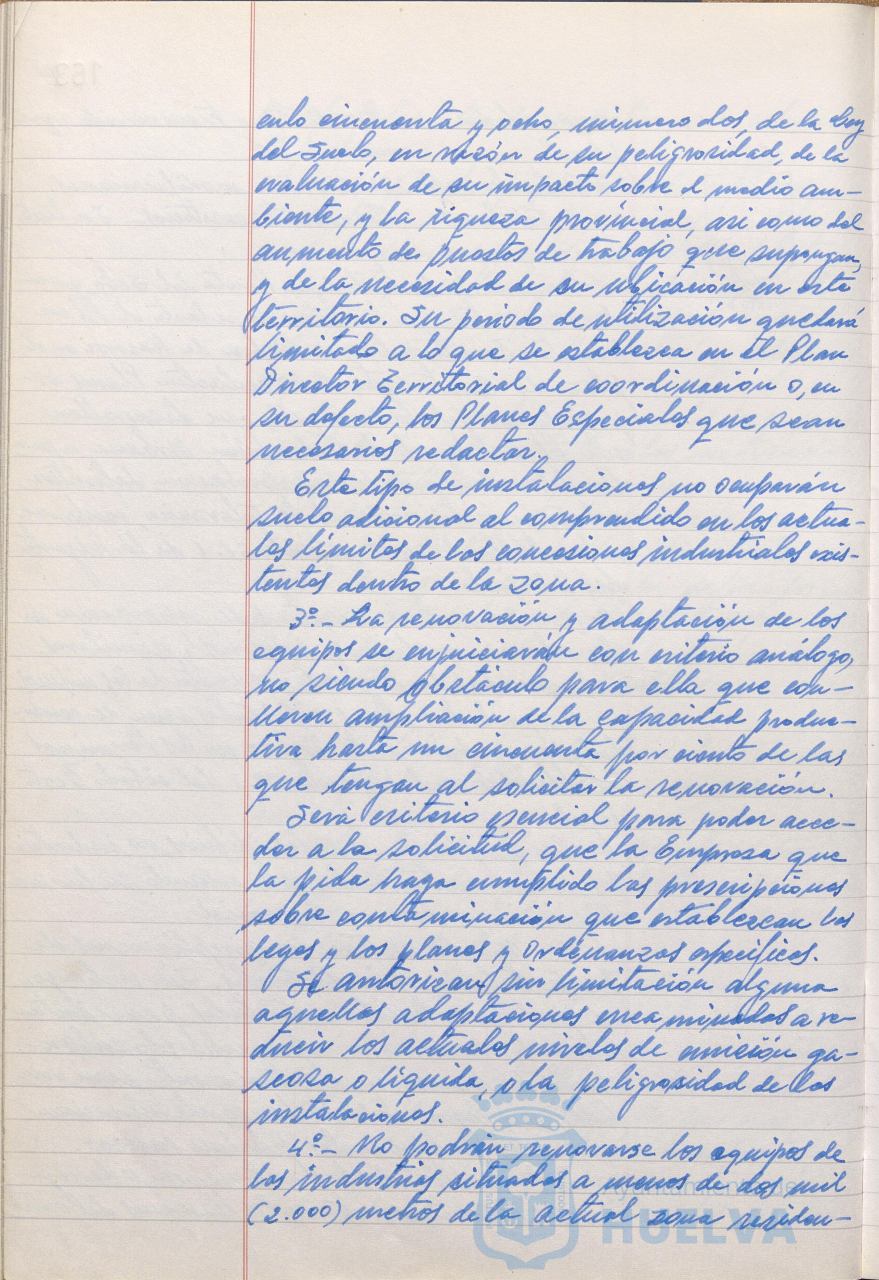 culo cincuenta y ocho, número dos, de la Ley
del Suelo, en razón de su peligrosidad, de la
evaluación de su impacto sobre el medio am-
biente, y la riqueza provincial, asi como del
aumento de puestos de trabajo que supongan,
y de la necesidad de su ubicación en este
territorio. Su periodo de utilización quedará
limitado a lo que se establezca en el Plan
Director Territorial de coordinación o, en
su defecto, los Planes Especiales que sean
necesarios redactar.
Este tipo de instalaciones no ocuparán
suelo adicional al comprendido en los actua-
les límites de las concesiones industriales exis-
tentes dentro de la zona.
3º.- La renovación y adaptación de los
equipos se enjuiciarán con criterio análogo,
no siendo obstáculo para ella que con-
lleven ampliación de la capacidad produc-
tiva hasta un cincuenta por ciento de las
que tengan al solicitar la renovación.
Será criterio esencial para poder acce-
der a la solicitud, que la Empresa que
la pida haya cumplido las prescripciones
sobre contaminación que establezcan las
leyes y los planes y Ordenanzas específicos.
Se autorizan sin limitación alguna
aquellas adaptaciones encaminadas a re-
ducir los actuales niveles de emisión ga-
seosa o líquida, o la peligrosidad de las
instalaciones.
4º.- No podrán renovarse los equipos de
las industrias situadas a menos de dos mil
(2.000) metros de la actual zona residen-
Ayuntamiento de
HUELVA